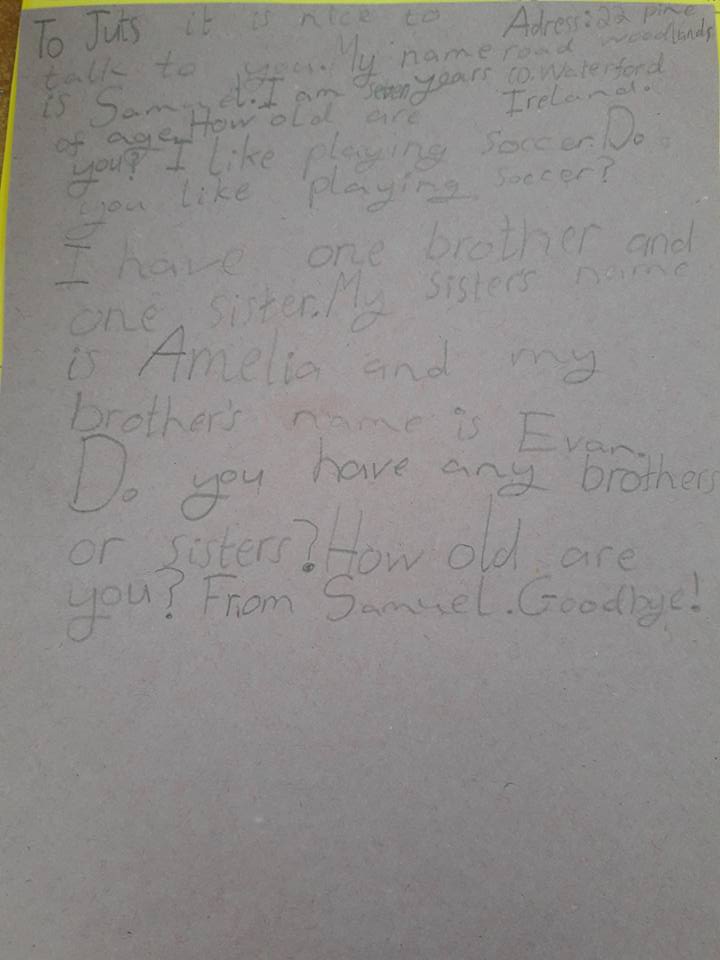 To Juts it is nice to
talk to you. My name
is Samuel. I am seven years
of age. How old are
you? I like playing soccer. Do
you like playing soccer?
Adress: 22 pine
road woodlands
co. Waterford
Ireland.
I have one brother and
one sister. My sisters name
is Amelia and my
brother's name is Evan.
Do you have any brothers
or sisters? How old are
you? From Samuel. Goodbye!